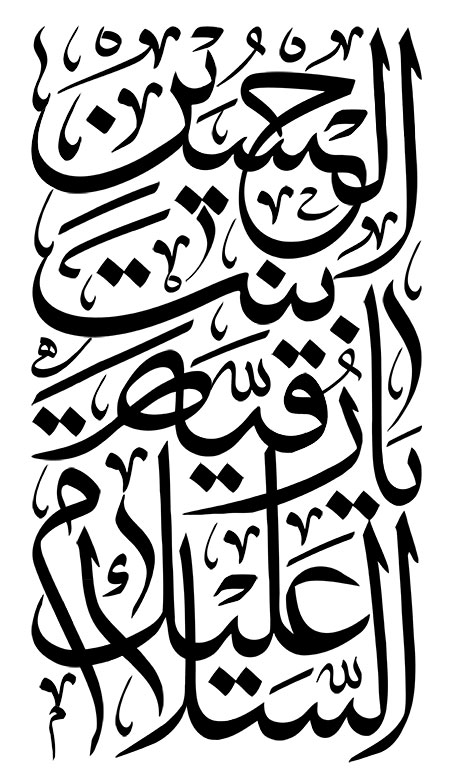 السَّلام
عليك
يا رُقيّة
بنت
الحُسين